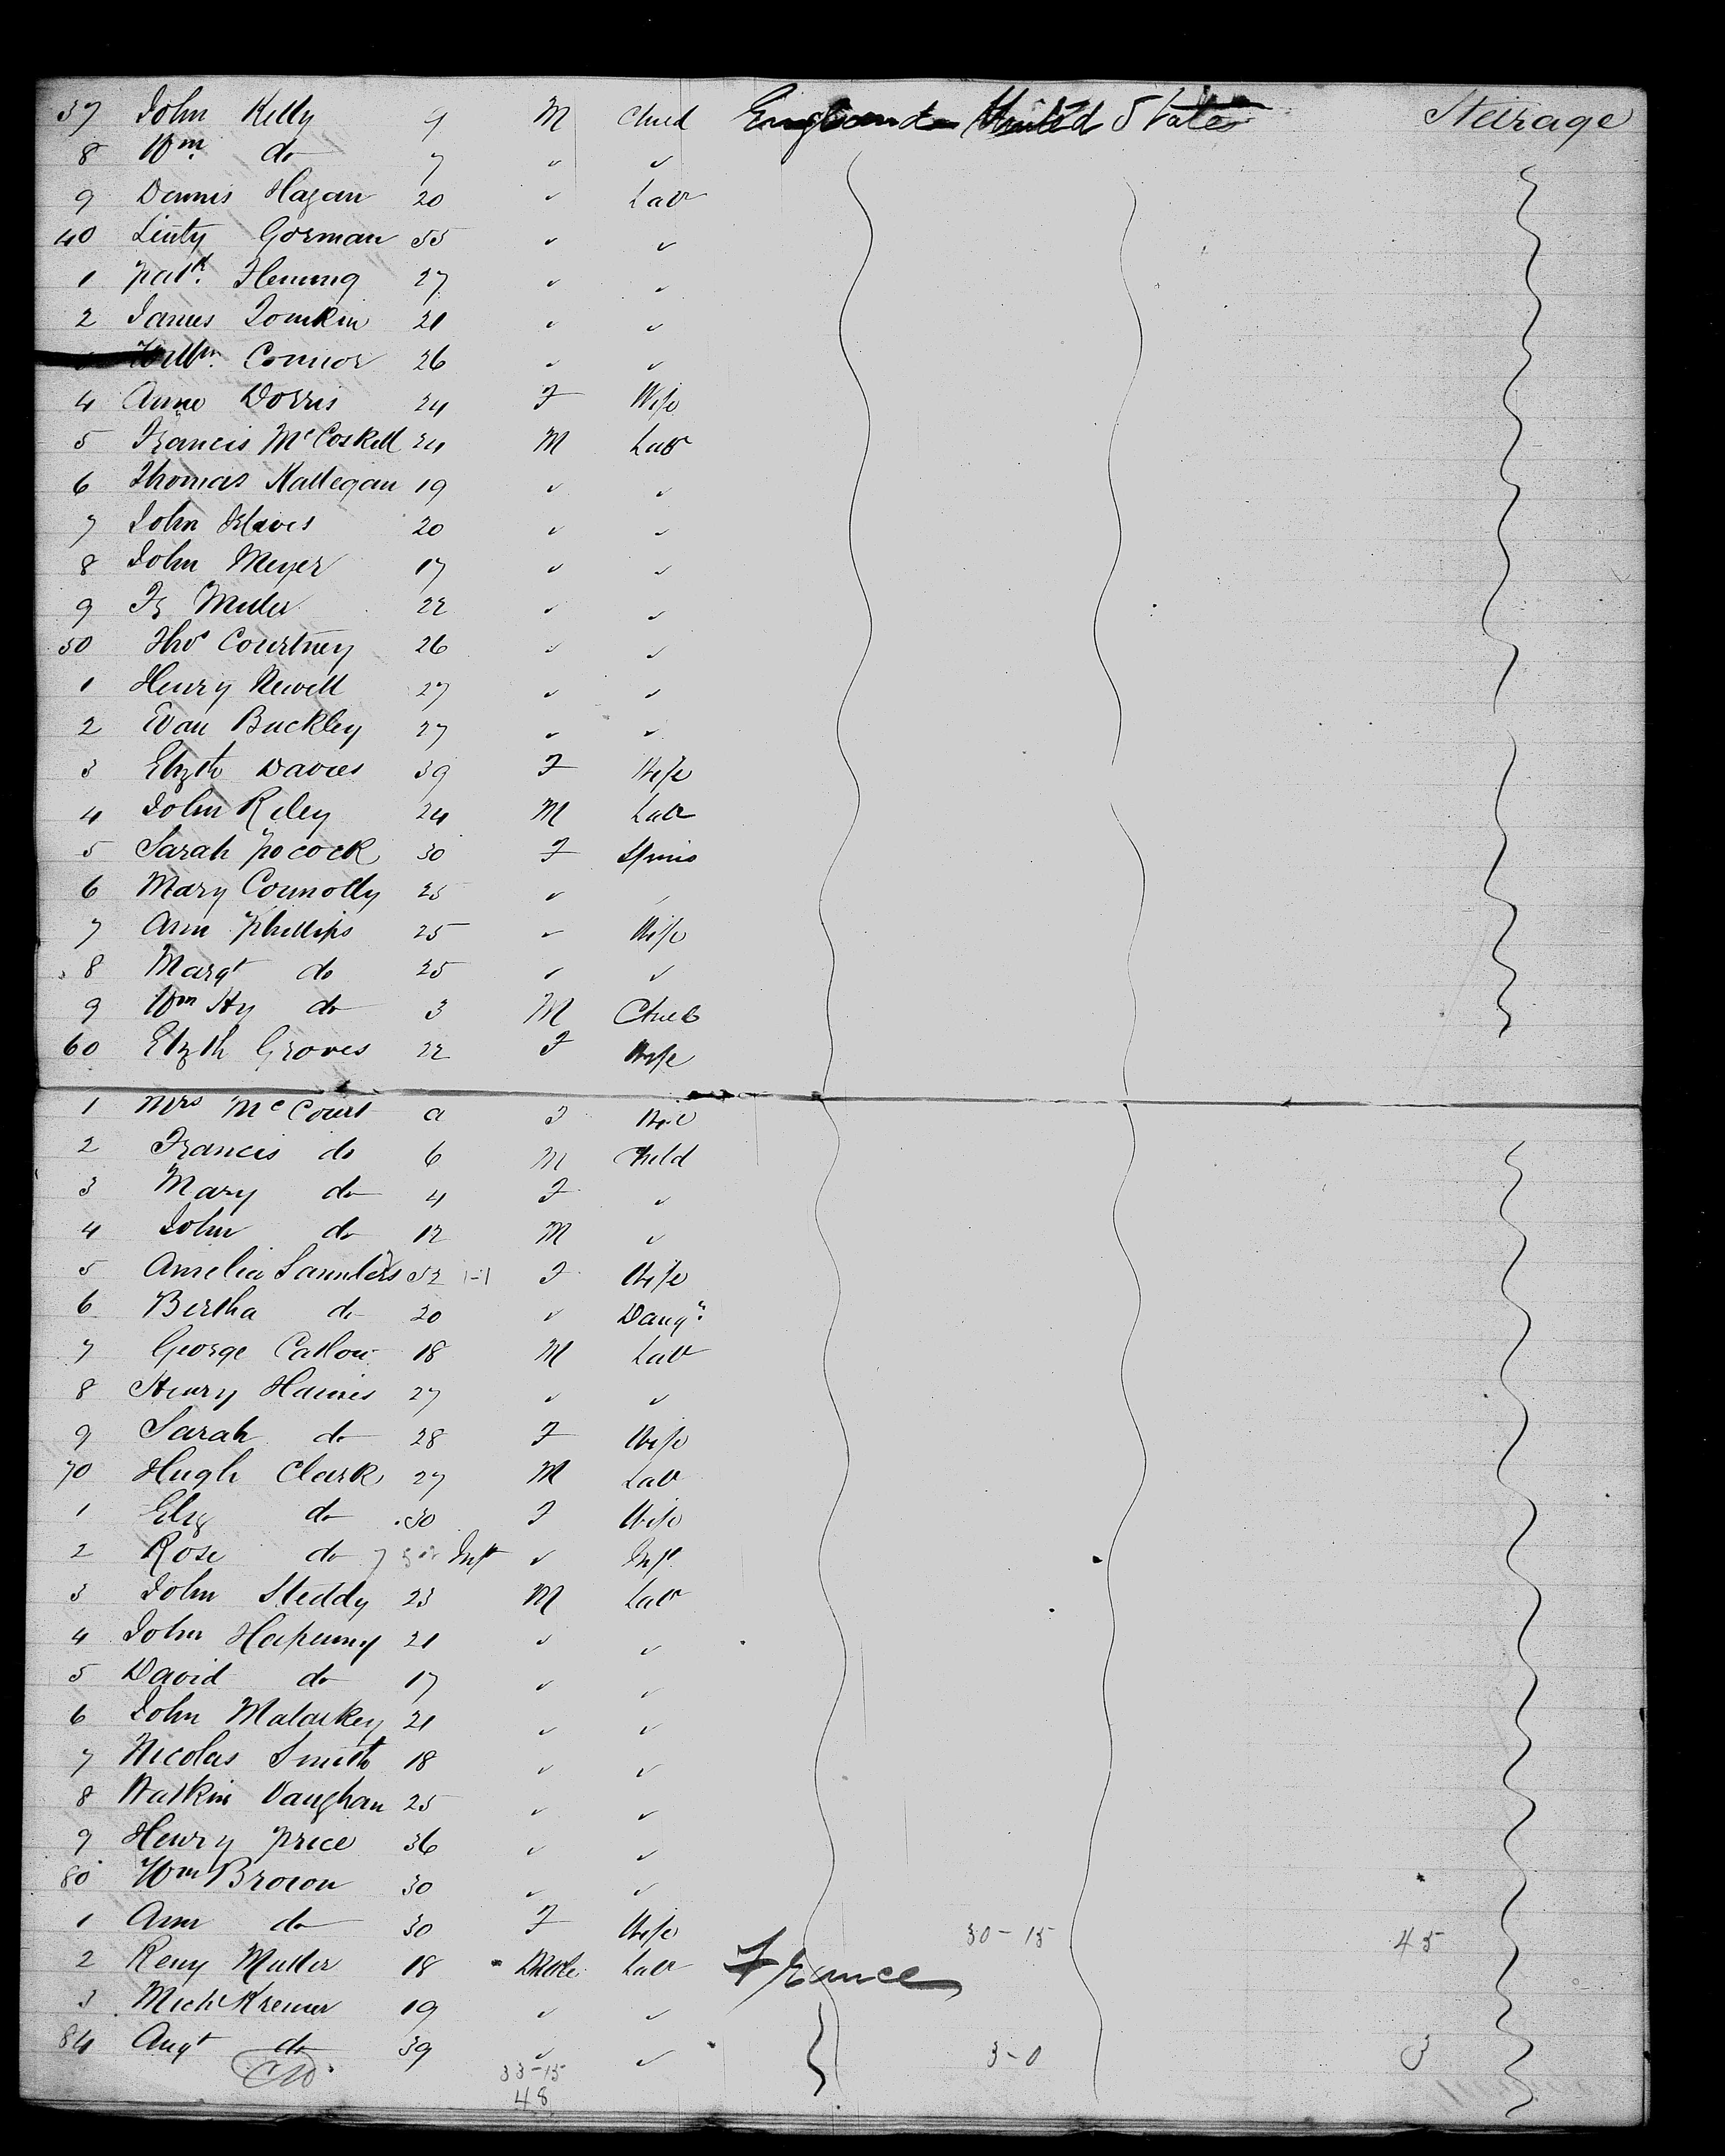 37 John Kelly 9 M Child England United States Steerage
8 Wm do 7 " "
9 Dennis Hagan 20 " Labr
40 Gorman 55 " "
1 Patk. Fleming 27 " "
2 James Tomkin 21 " "
Willm. Connor 26 " "
4 Anne Dorris 24 F Wife
5 Francis McCoskell 24 M Labr
6 Thomas Kallegan 19 " "
7 John 20 " "
8 John Meyer 17 " "
9 Fz Muller 22 " "
50 Thos Courtney 26 " "
1 Henry Newell 27 " "
2 Evan Buckley 27 " "
3 Elizth Davies 39 F Wife
4 John Riley 24 M Labr
5 Sarah Pocock 30 F Spins
6 Mary Connolly 25 " "
7 Ann Phillips 25 " Wife
8 Margt do 25 " "
9 Wm Hy do 3 M Child
60 Elzth Groves 22 F Wife
1 Mrs McCourt a F Wife
2 Francis do 6 M Child
3 Mary do 4 F "
4 John do 12 M "
5 Amelia Saunders 52 1-1 F Wife
6 Bertha do 20 " Daugr
7 George Catlow 18 M Labr
8 Henry Haines 27 " "
9 Sarah do 28 F Wife
70 Hugh Clark 27 M Labr
1 Eliz do 30 F Wife
2 Rose do Inft " Inft
3 John Steddy 23 M Labr
4 John Hapenny 21 " "
5 David do 17 " "
6 John Malarkey 21 " "
7 Nicolas Smith 18 " "
8 Watkin Vaughan 25 " "
9 Henry Price 36 " "
80 Wm Brown 30 " "
1 Ann do 30 F Wife 30-15 45
2 Remy Muller 18 Male Labr France
3 Michl Kremer 19 " "
84 Augt do 39 " " 3-0 3
33-15
48